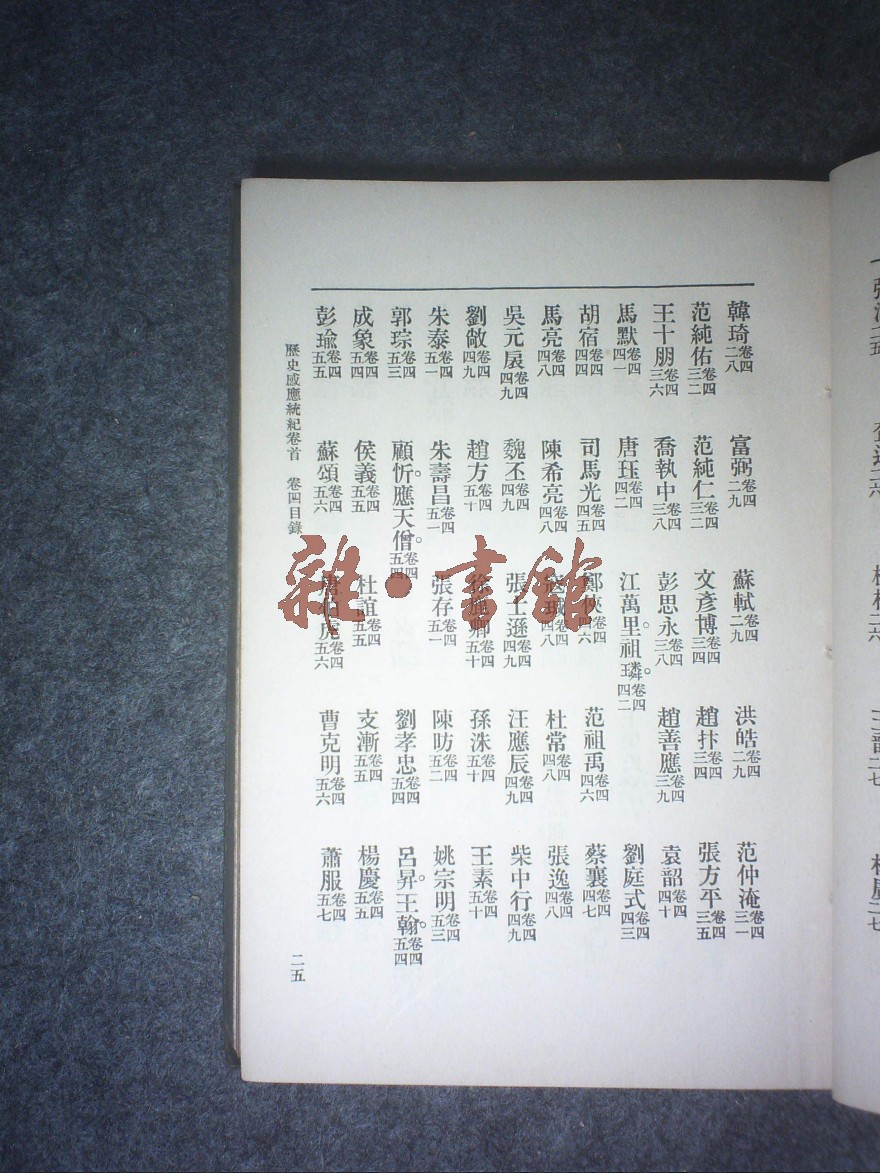 韓琦卷四二八 富弼卷四二九 蘇軾卷四二九 洪皓卷四二九 范仲淹卷四三一
范純佑卷四三二 范純仁卷四三二 文彥博卷四三四 趙抃卷四三四 張方平卷四三五
王十朋卷四三六 喬執中卷四三八 彭思永卷四三八 趙善應卷四三九 袁韶卷四四十
馬默卷四四一 唐珏卷四四二 江萬里。祖璘。卷四四二 劉庭式卷四四三
胡宿卷四四四 司馬光卷四四五 鄭俠卷四四六 范祖禹卷四四六 蔡襄卷四四七
馬亮卷四四八 陳希亮卷四四八 卷四四八 杜常卷四四八 張逸卷四四八
吳元扆卷四四九 魏丕卷四四九 張士遜卷四四九 汪應辰卷四四九 柴中行卷四四九
劉敞卷四四九 趙方卷四五十 卷四五十 孫洙卷四五十 王素卷四五十
朱泰卷四五一 朱壽昌卷四五一 張存卷四五一 陳昉卷四五二 姚宗明卷四五三
郭琮卷四五三 顧忻。應天僧。卷四五四 劉孝忠卷四五四 呂昇。王翰。卷四五四
成象卷四五四 侯義卷四五五 杜誼卷四五五 支漸卷四五五 楊慶卷四五五
彭瑜卷四五五 蘇頌卷四五六 唐伯虎卷四五六 曹克明卷四五六 蕭服卷四五七
歷史感應統紀卷首 卷四目錄 二五
雜·書館